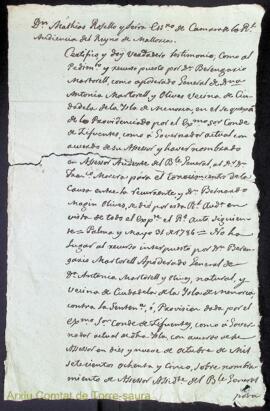 Dn. Mathias Rosello y Señ. Ess.no de Camara de la Rl.
Audiencia del Reyno de Mallorca
Certifico y doy verdadero testimonio, Como al
Pedim.to y recurso puesto por Dn. Berengario
Martorell, como apoderado General de Dna.
Antonia Martorell, y Olives vecina de Ciu-
dadela de la Isla de Menorca, en el
de lo Providenciado por el Exmo. Señor Conde
de Cifuentes, como a Governador actual con
acuerdo de su Asesor y haver nombrado
en Assesor del Rl. General, al Dr. Dn.
Fran.co para el conocimiento de la
Causa entre la recurrente y Dn. Bernardo
Magin Olives, se dió por esta Rl. Aud.a en
vista de todo el Exp.te el Rl. Auto siguien-
te = Palma y Mayo de 1786 = No ha
lugar al recurso interpuesto por Dn. Beren-
gario Martorell Apoderado General de
Da. Antonia Martorell y Olives, natural, y
vecina de Ciudadela de la Isla de Menorca
contra la Senten.a, ó, Provision dada por el
Exmo. Sor. Conde de Cifuentes, como a Gover-
nador actual de dha. Isla, con acuerdo de su
Asesor en diez y nueve de octubre de Mil
setecientos ochenta y Cinco, sobre nombra-
miento de Asesor del Rl. Governo
para
Arxiu Comtat de Torre-saura